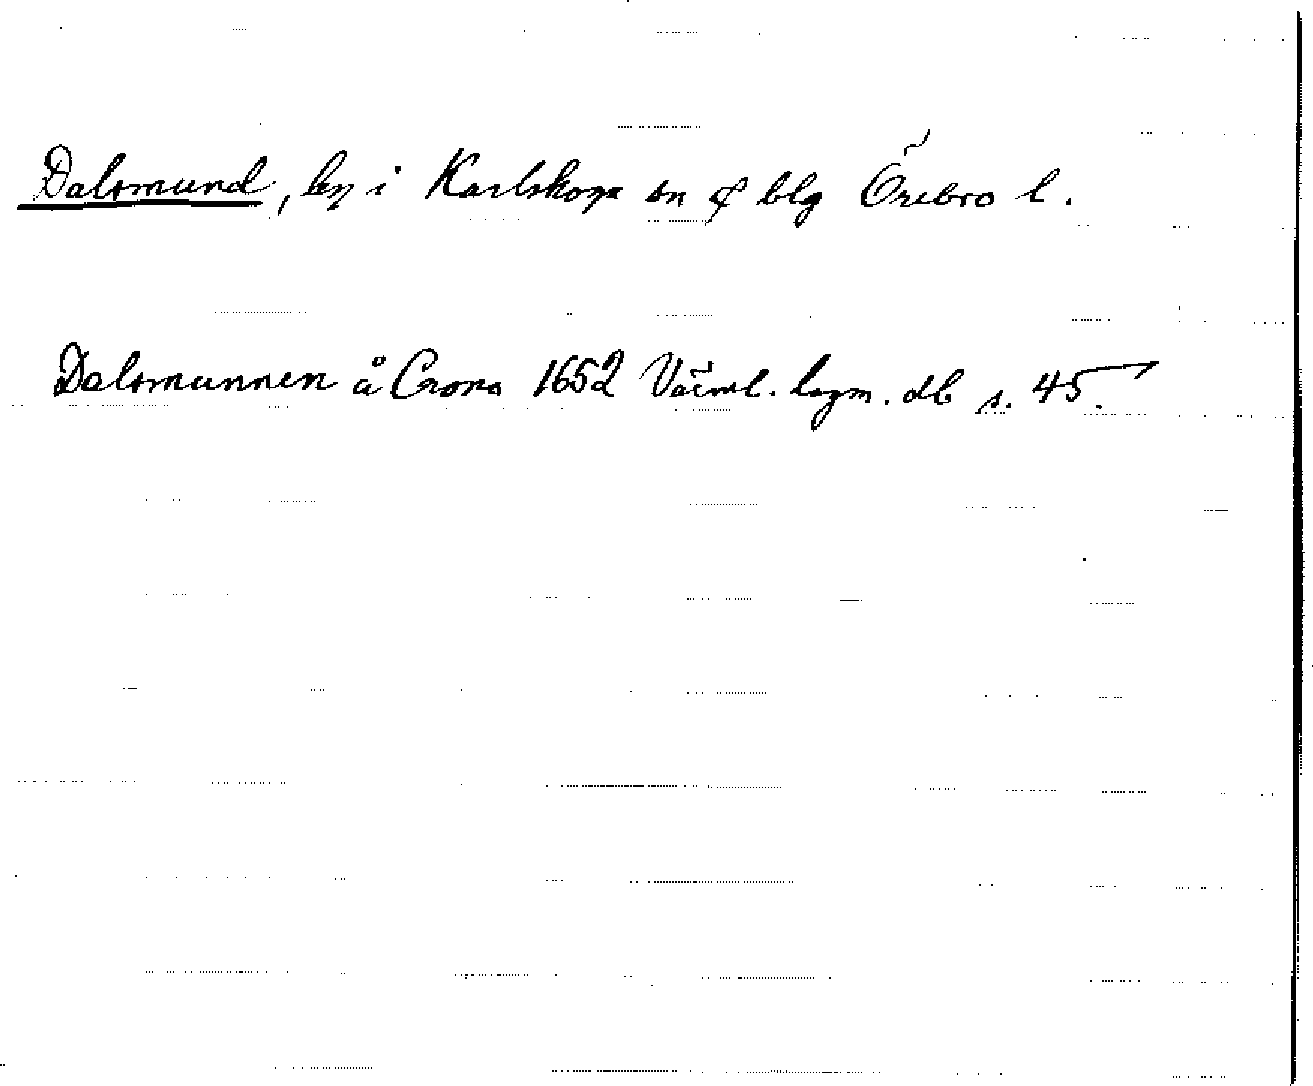 Dalsmund, by i Karlskoga sn & blg Örebro l.
Dalsmunnen å Crono 1652 Värml. lagm. db s. 45.